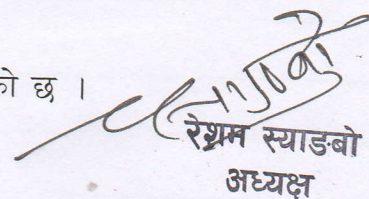 को छ ।
रेशम स्याङबो
अध्यक्ष